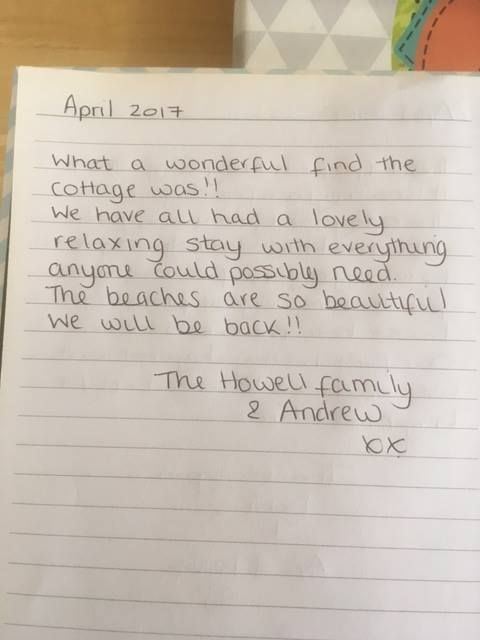 April 2017
What a wonderful find the
cottage was!!
We have all had a lovely
relaxing stay with everything
anyone could possibly need.
The beaches are so beautiful
We will be back!!
The Howell family
& Andrew
xx